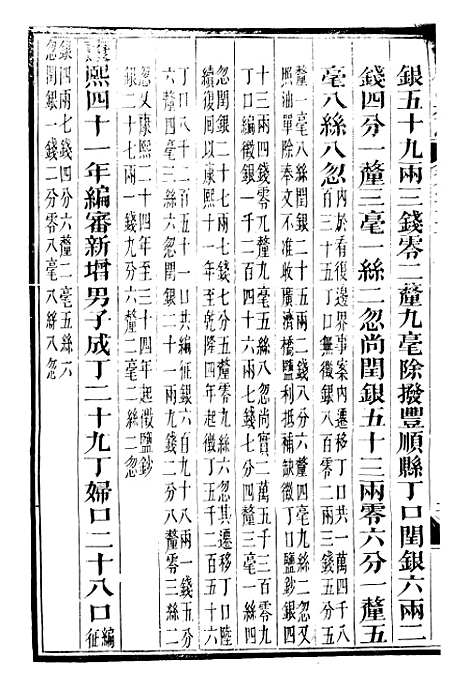 銀五十九兩三錢零二釐九毫除撥豐順縣丁口閏銀六兩二
錢四分一釐三毫一絲二忽尚閏銀五十三兩零六分一釐五
毫八絲八忽
內於看復邊界事案內遷移丁口共一萬四千八
百三十五丁口無徵銀八百零二兩三錢五分三
釐一毫八絲閏銀二十二兩二錢八分六釐四毫九絲二忽又
照油單除奉文不准收廣濟橋鹽利抵補缺徵丁口鹽鈔銀四
十三兩四錢零九釐三毫五絲八忽尚實二萬五千三百零九
丁口編徵銀一千二百四十六兩七錢四分四釐三毫一絲四
忽閏銀二十七兩七錢七分五釐零九絲六忽其遷移丁口陸
續復回以康熙十一年至乾隆四年起徵丁五千二百五十六
丁口八千六百一十一口共編徵銀六百九十八兩一錢零五
六釐四毫三絲六忽閏銀二十一兩九錢二分八釐零三絲二
忽又康熙二十四年至三十四年起徵鹽鈔
銀二十七兩一錢九分六釐二毫二絲二忽
康熙四十一年編審新增男子成丁二十九丁婦口二十八口
編征
銀四兩七錢四分六釐二毫五絲六
忽閏銀一錢二分零八毫八絲八忽